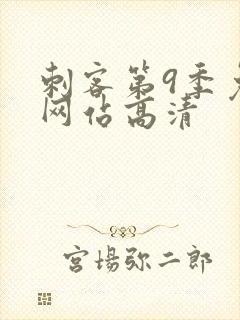 刺客第9季免
网站高清
宫場弥二郎